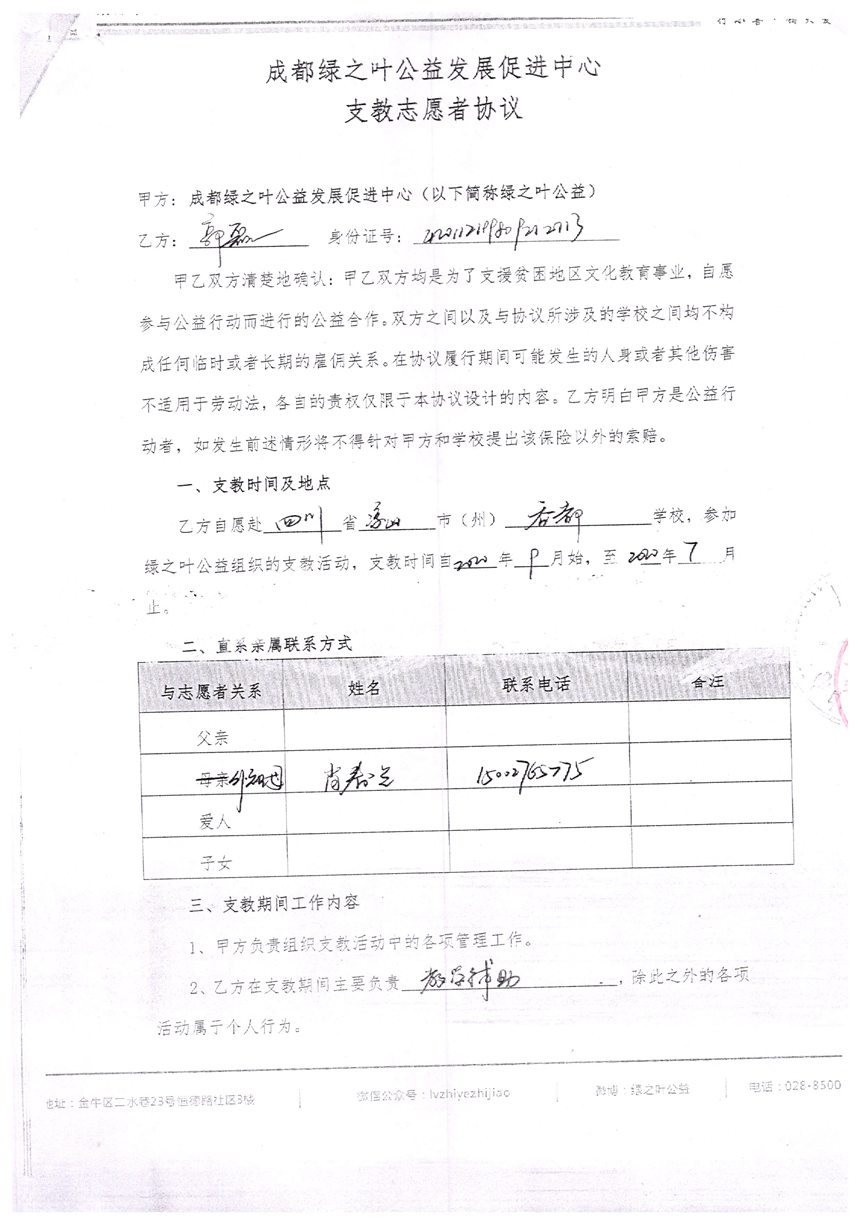 成都绿之叶公益发展促进中心
支教志愿者协议
甲方：成都绿之叶公益发展促进中心（以下简称绿之叶公益）
乙方： 身份证号：
甲乙双方清楚地确认：甲乙双方均是为了支援贫困地区文化教育事业，自愿
参与公益行动而进行的公益合作。双方之间以及与协议所涉及的学校之间均不构
成任何临时或者长期的雇佣关系。在协议履行期间可能发生的人身或者其他伤害
不适用于劳动法，各自的责权仅限于本协议设计的内容。乙方明白甲方是公益行
动者，如发生前述情形将不得针对甲方和学校提出该保险以外的索赔。
一、支教时间及地点
乙方自愿赴 四川 省 凉山 市（州） 学校，参加
绿之叶公益组织的支教活动，支教时间自 2020 年 9 月始，至 2020 年 7 月
止。
二、直系亲属联系方式
与志愿者关系 姓名 联系电话 备注
父亲
母亲 15002765775
爱人
子女
三、支教期间工作内容
1、甲方负责组织支教活动中的各项管理工作。
2、乙方在支教期间主要负责 教学辅助 ，除此之外的各项
活动属于个人行为。
地址：金牛区二水巷23号恒德路社区3楼 微信公众号：lvzhiyezhijiao 微博：绿之叶公益 电话：028-8500